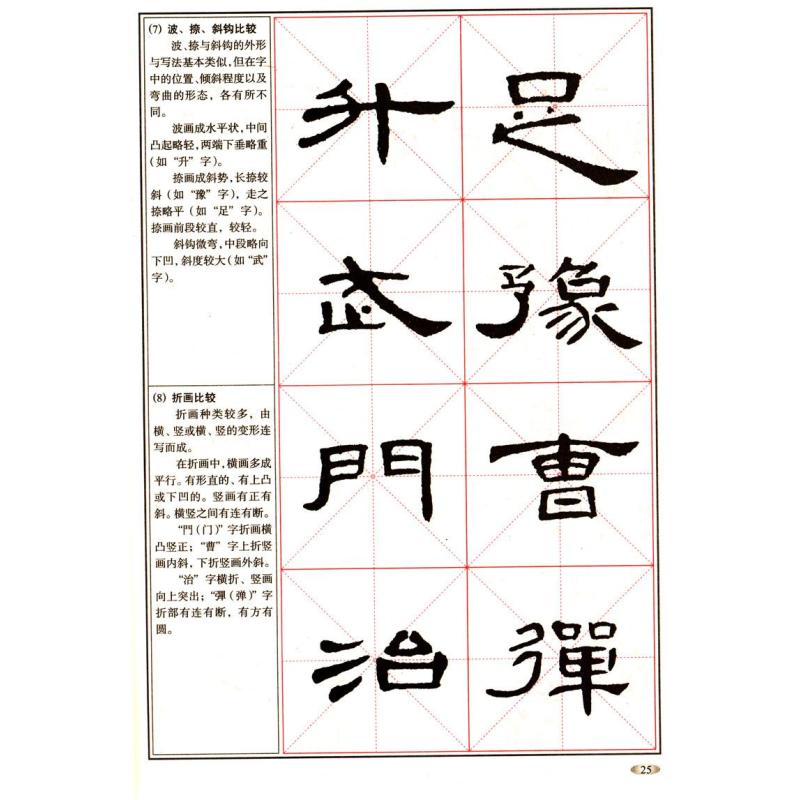 (7) 波、捺、斜钩比较
波、捺与斜钩的外形
与写法基本类似,但在字
中的位置、倾斜程度以及
弯曲的形态,各有所不
同。
波画成水平状,中间
凸起略轻,两端下垂略重
(如“升”字)。
捺画成斜势,长捺较
斜(如“豫”字),走之
捺略平(如“足”字)。
捺画前段较直,较轻。
斜钩微弯,中段略向
下凹,斜度较大(如“武”
字)。
(8) 折画比较
折画种类较多,由
横、竖或横、竖的变形连
写而成。
在折画中,横画多成
平行。有形直的、有上凸
或下凹的。竖画有正有
斜。横竖之间有连有断。
“門(门)”字折画横
凸竖正;“曹”字上折竖
画内斜,下折竖画外斜。
“治”字横折、竖画
向上突出;“彈(弹)”字
折部有连有断,有方有
圆。
升 足
武 豫
門 曹
治 彈
25